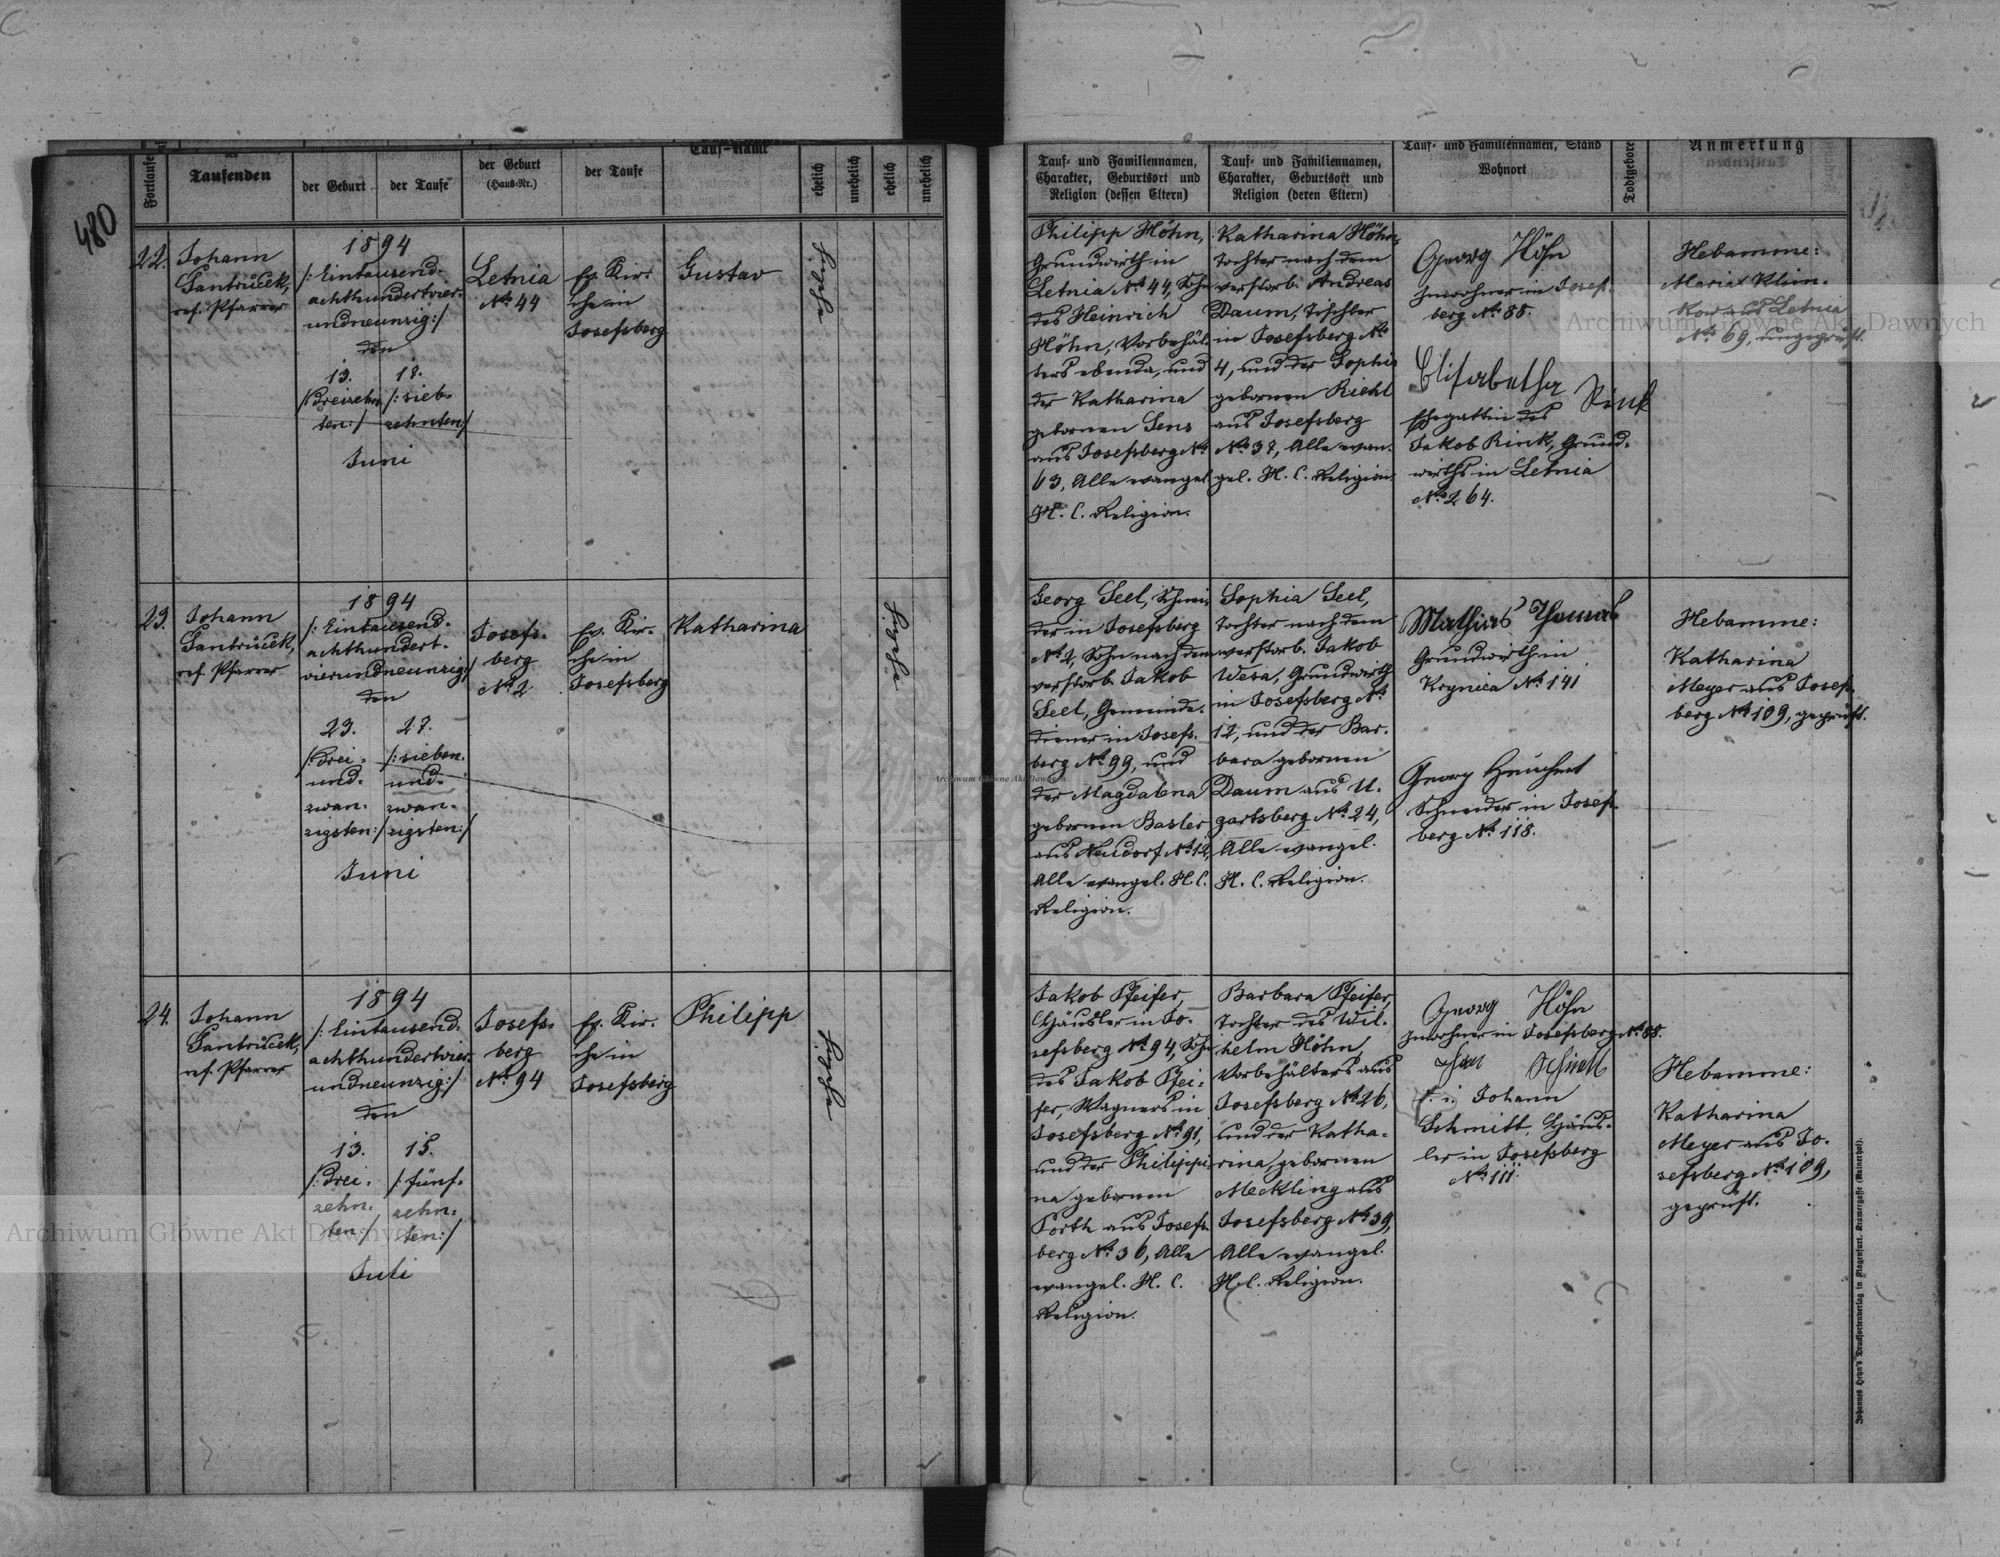 480
Fortlaufe
Taufenden
der Geburt
der Taufe
der Geburt
(Haus-Nr.)
der Taufe
Tauf-Name
ehelich
unehelich
ehelich
unehelich
Tauf- und Familiennamen,
Charakter, Geburtsort und
Religion (dessen Eltern)
Tauf- und Familiennamen,
Charakter, Geburtsort und
Religion (deren Eltern)
Tauf- und Familiennamen, Stand
Wohnort
Todtgebore
Anmerkung
22.
Johann
Jantruček,
ref. Pfarrer
1894
/: Eintausend-
achthundertvier-
undneunzig:/
den
13. 17.
/:Dreizehn- /: sieb-
ten:/ zehnten:/
Juni
Letnia
No 44
Ev. Kir-
che in
Josefsberg
Gustav
Philipp Höhn,
Grundwirth in
Letnia No 44, Sohn
des Heinrich
Höhn, Vorbehäl-
ters ebenda, und
der Katharina
gebornen Sens
aus Josefsberg No
63, Alle evangel.
H. C. Religion.
Katharina Höhn,
Tochter nach dem
verstorb. Andreas
Daum, Tischler
in Josefsberg No
4, und der Sophia
gebornen Riehl
aus Josefsberg
No 37, Alle evan-
gel. H. C. Religion.
Georg Höhn
Inwohner in Josefs-
berg No 88.
Elisabetha Rink
Ehegattin des
Jakob Rink, Grund-
wirths in Letnia
No 264.
Hebamme:
Maria Klim-
kow aus Letnia
No 69, ungeprüft.
23.
Johann
Jantruček,
ref. Pfarrer
1894
/: Eintausend-
achthundert-
vierundneunzig:/
den
23. 27.
/:Drei- /: sieben-
und- und-
zwan- zwan-
zigsten:/ zigsten:/
Juni
Josefs-
berg
No 2
Ev. Kir-
che in
Josefsberg
Katharina
Georg Seel, Schnei-
der in Josefsberg
No 2, Sohn nach dem
verstorb. Jakob
Seel, Gemeinde-
diener in Josefs-
berg No 99, und
der Magdalena
gebornen Basler
aus Neudorf No 12,
Alle evangel. H. C.
Religion.
Sophia Seel,
Tochter nach dem
verstorb. Jakob
Wesa, Grundwirth
in Josefsberg No
12, und der Bar-
bara gebornen
Daum aus U-
gartsberg No 24,
Alle evangel.
H. C. Religion.
Mathias Thomas
Grundwirth in
Krynica No 141
Georg Heuchert
Schneider in Josefs-
berg No 118.
Hebamme:
Katharina
Meyer aus Josefs-
berg No 109, geprüft.
24.
Johann
Jantruček,
ref. Pfarrer
1894
/: Eintausend-
achthundertvier-
undneunzig:/
den
13. 15.
/:Drei- /: fünf-
zehn- zehn-
ten:/ ten:/
Juli
Josefs-
berg
No 94
Ev. Kir-
che in
Josefsberg
Philipp
Jakob Pfeifer,
Häusler in Jo-
sefsberg No 94, Sohn
des Jakob Pfei-
fer, Wagners in
Josefsberg No 91,
und der Philippi-
na gebornen
Porth aus Josefs-
berg No 36, Alle
evangel. H. C.
Religion.
Barbara Pfeifer,
Tochter des Wil-
helm Höhn,
Vorbehälters aus
Josefsberg No 26,
und der Katha-
rina gebornen
Meckling aus
Josefsberg No 39,
Alle evangel.
H. C. Religion.
Georg Höhn
Inwohner in Josefsberg No 88.
Jan Schmitt
d. i. Johann
Schmitt, Häus-
ler in Josefsberg
No 111.
Hebamme:
Katharina
Meyer aus Jo-
sefsberg No 109,
geprüft.
Johannes Heyn's Drucksortenverlag in Klagenfurt. Kramergasse (Mainerhof).
Archiwum Główne Akt Dawnych
Archiwum Główne Akt Dawnych
Archiwum Główne Akt Dawnych